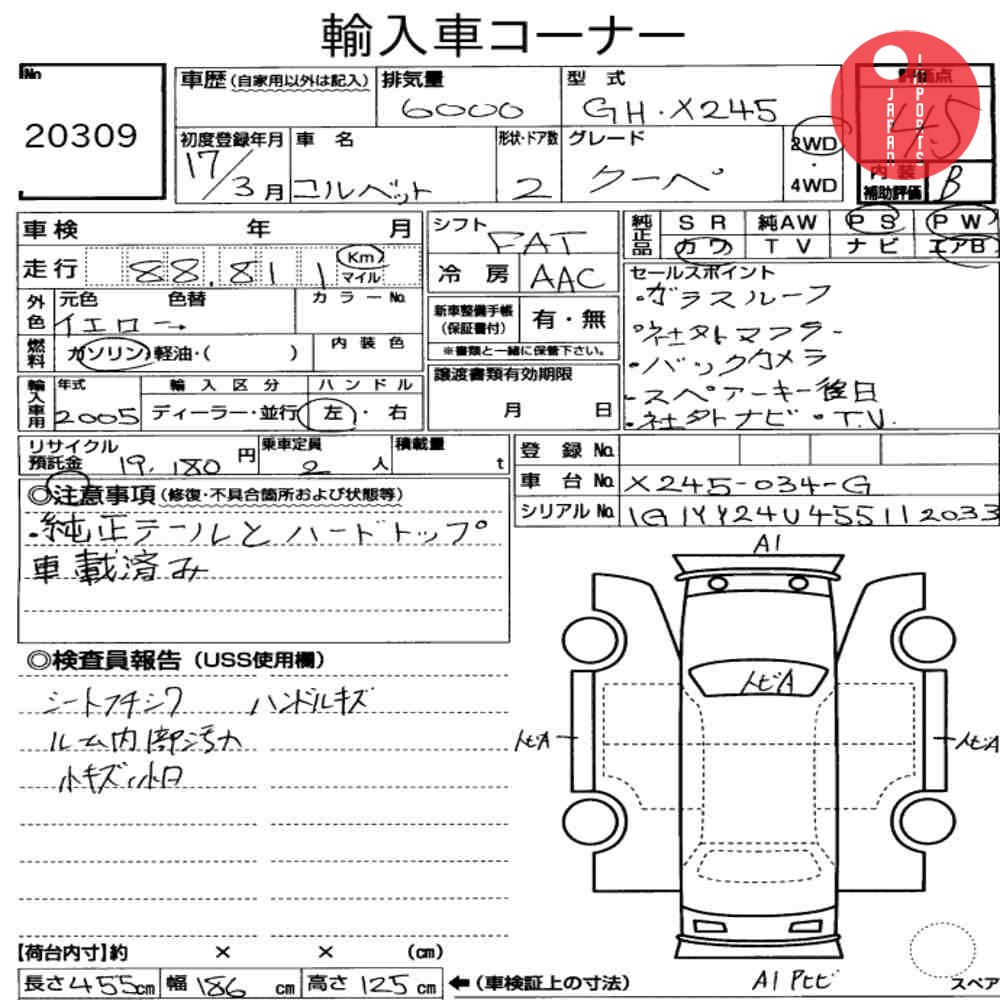 輸入車コーナー
No.
20309
車歴（自家用以外は記入）
排気量
6000
型 式
GH・X245
評価点
4.5
JAPAN IMPORTS
初度登録年月
17/3月
車 名
コルベット
形状・ドア数
2
グレード
クーペ
2WD
・
4WD
内 装
補助評価
B
車検 年 月
シフト
FAT
純正品
S R 純AW P S P W
カワ T V ナビ エアB
走行 88,811
Km
マイル
冷 房 AAC
セールスポイント
・ガラスルーフ
・社外マフラー
・バックカメラ
・スペアーキー後日
・社外ナビ・T.V.
外色
元色 色替 カラーNo.
イエロー→
新車整備手帳
（保証書付）
有・無
※書類と一緒に保管下さい。
燃料
ガソリン・軽油・( )
内 装 色
譲渡書類有効期限
月 日
輸入車用
年式
2005
輸 入 区 分
ディーラー・並行
ハ ン ド ル
左・右
リサイクル
預託金 19,180 円
乗車定員
2 人
積載量
t
登 録 No.
車 台 No. X245-034-G
シリアル No. 1G1YY24U455112033
◎注意事項（修復・不具合箇所および状態等）
・純正テールとハードトップ
車載済み
◎検査員報告（USS使用欄）
シートフチシワ ハンドルキズ
ルーム内部汚れ
小キズ小凹
A1
トビA
トビA
トビA
A1 Pヒビ
スペア
【荷台内寸】約 × × (cm)
長さ455cm 幅186cm 高さ125cm ←（車検証上の寸法）